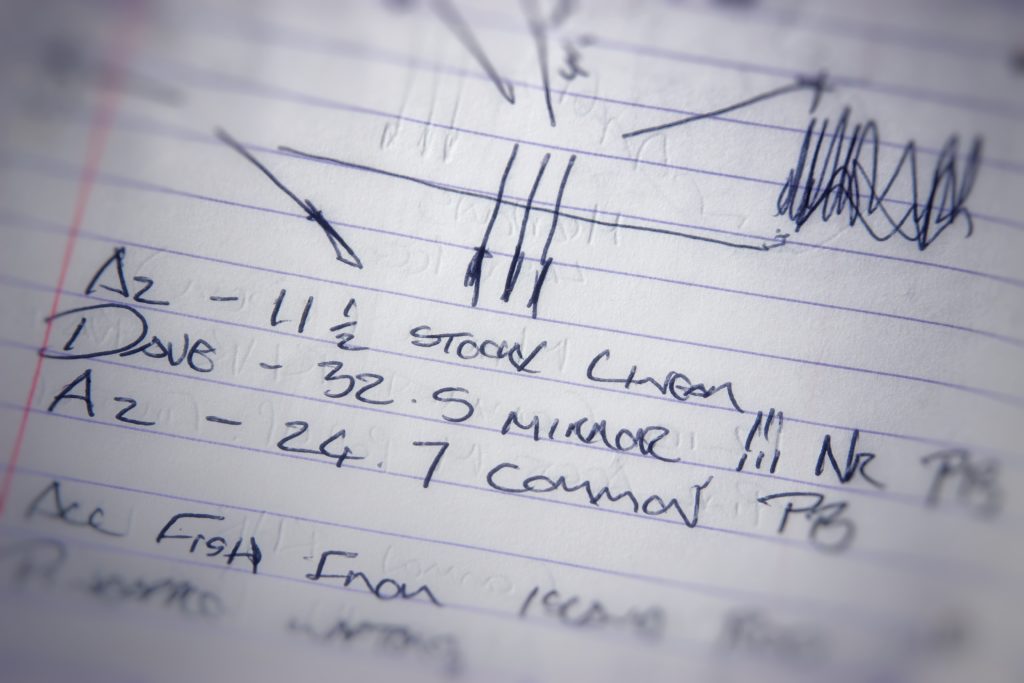 Az - 11 ½ STOCKY LINEAR
DAVE - 32.5 MIRROR !!! NR PB
Az - 24.7 COMMON PB
ALL FISH FROM ISLAND